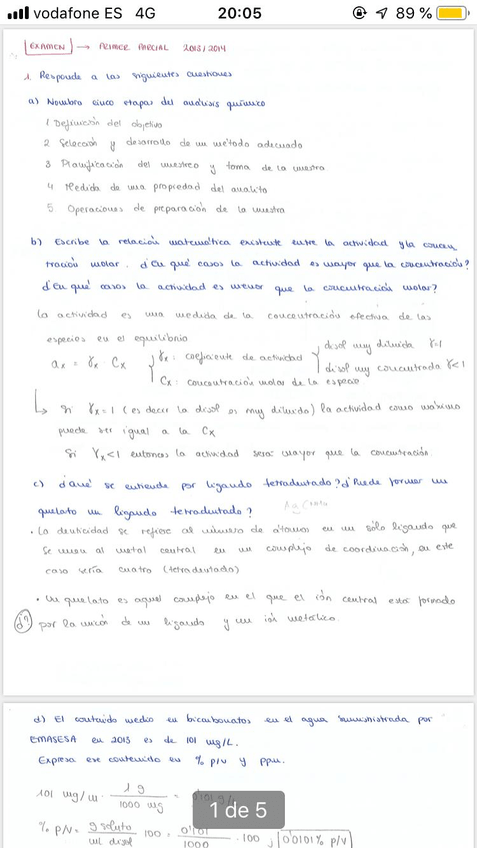 vodafone ES 4G 20:05 89 %
EXAMEN → PRIMER PARCIAL 2013/2014
1. Responde a las siguientes cuestiones
a) Nombra cinco etapas del análisis químico
1 Definición del objetivo
2 Selección y desarrollo de un método adecuado
3 Planificación del muestreo y toma de la muestra
4 Medida de una propiedad del analito
5 Operaciones de preparación de la muestra
b) Escribe la relación matemática existente entre la actividad y la concen
tración molar. ¿En qué casos la actividad es mayor que la concentración?
¿En qué casos la actividad es menor que la concentración molar?
La actividad es una medida de la concentración efectiva de las
especies en el equilibrio
ax = γx · Cx
γx: coeficiente de actividad
disol muy diluida γ=1
disol muy concentrada γ<1
Cx: concentración molar de la especie
Si γx=1 (es decir la disol es muy diluida) la actividad como máximo
puede ser igual a la Cx
Si γx<1 entonces la actividad será mayor que la concentración.
c) ¿Qué se entiende por ligando tetradentado? ¿Puede formar un
quelato un ligando tetradentado?
• La denticidad se refiere al número de átomos en un sólo ligando que
se unen al metal central en un complejo de coordinación, en este
caso sería cuatro (tetradentado)
• Un quelato es aquel complejo en el que el ión central está formado
¿? por la unión de un ligando y un ión metálico.
d) El contenido medio en bicarbonatos en el agua suministrada por
EMASESA en 2013 es de 101 mg/L.
Expresa ese contenido en % p/v y ppm.
101 mg/ · 1 g / 1000 mg = 0'101 g/
1 de 5
% P/V = g soluto / mL disol · 100 = 0'101 / 1000 · 100 = 0'0101 % P/V